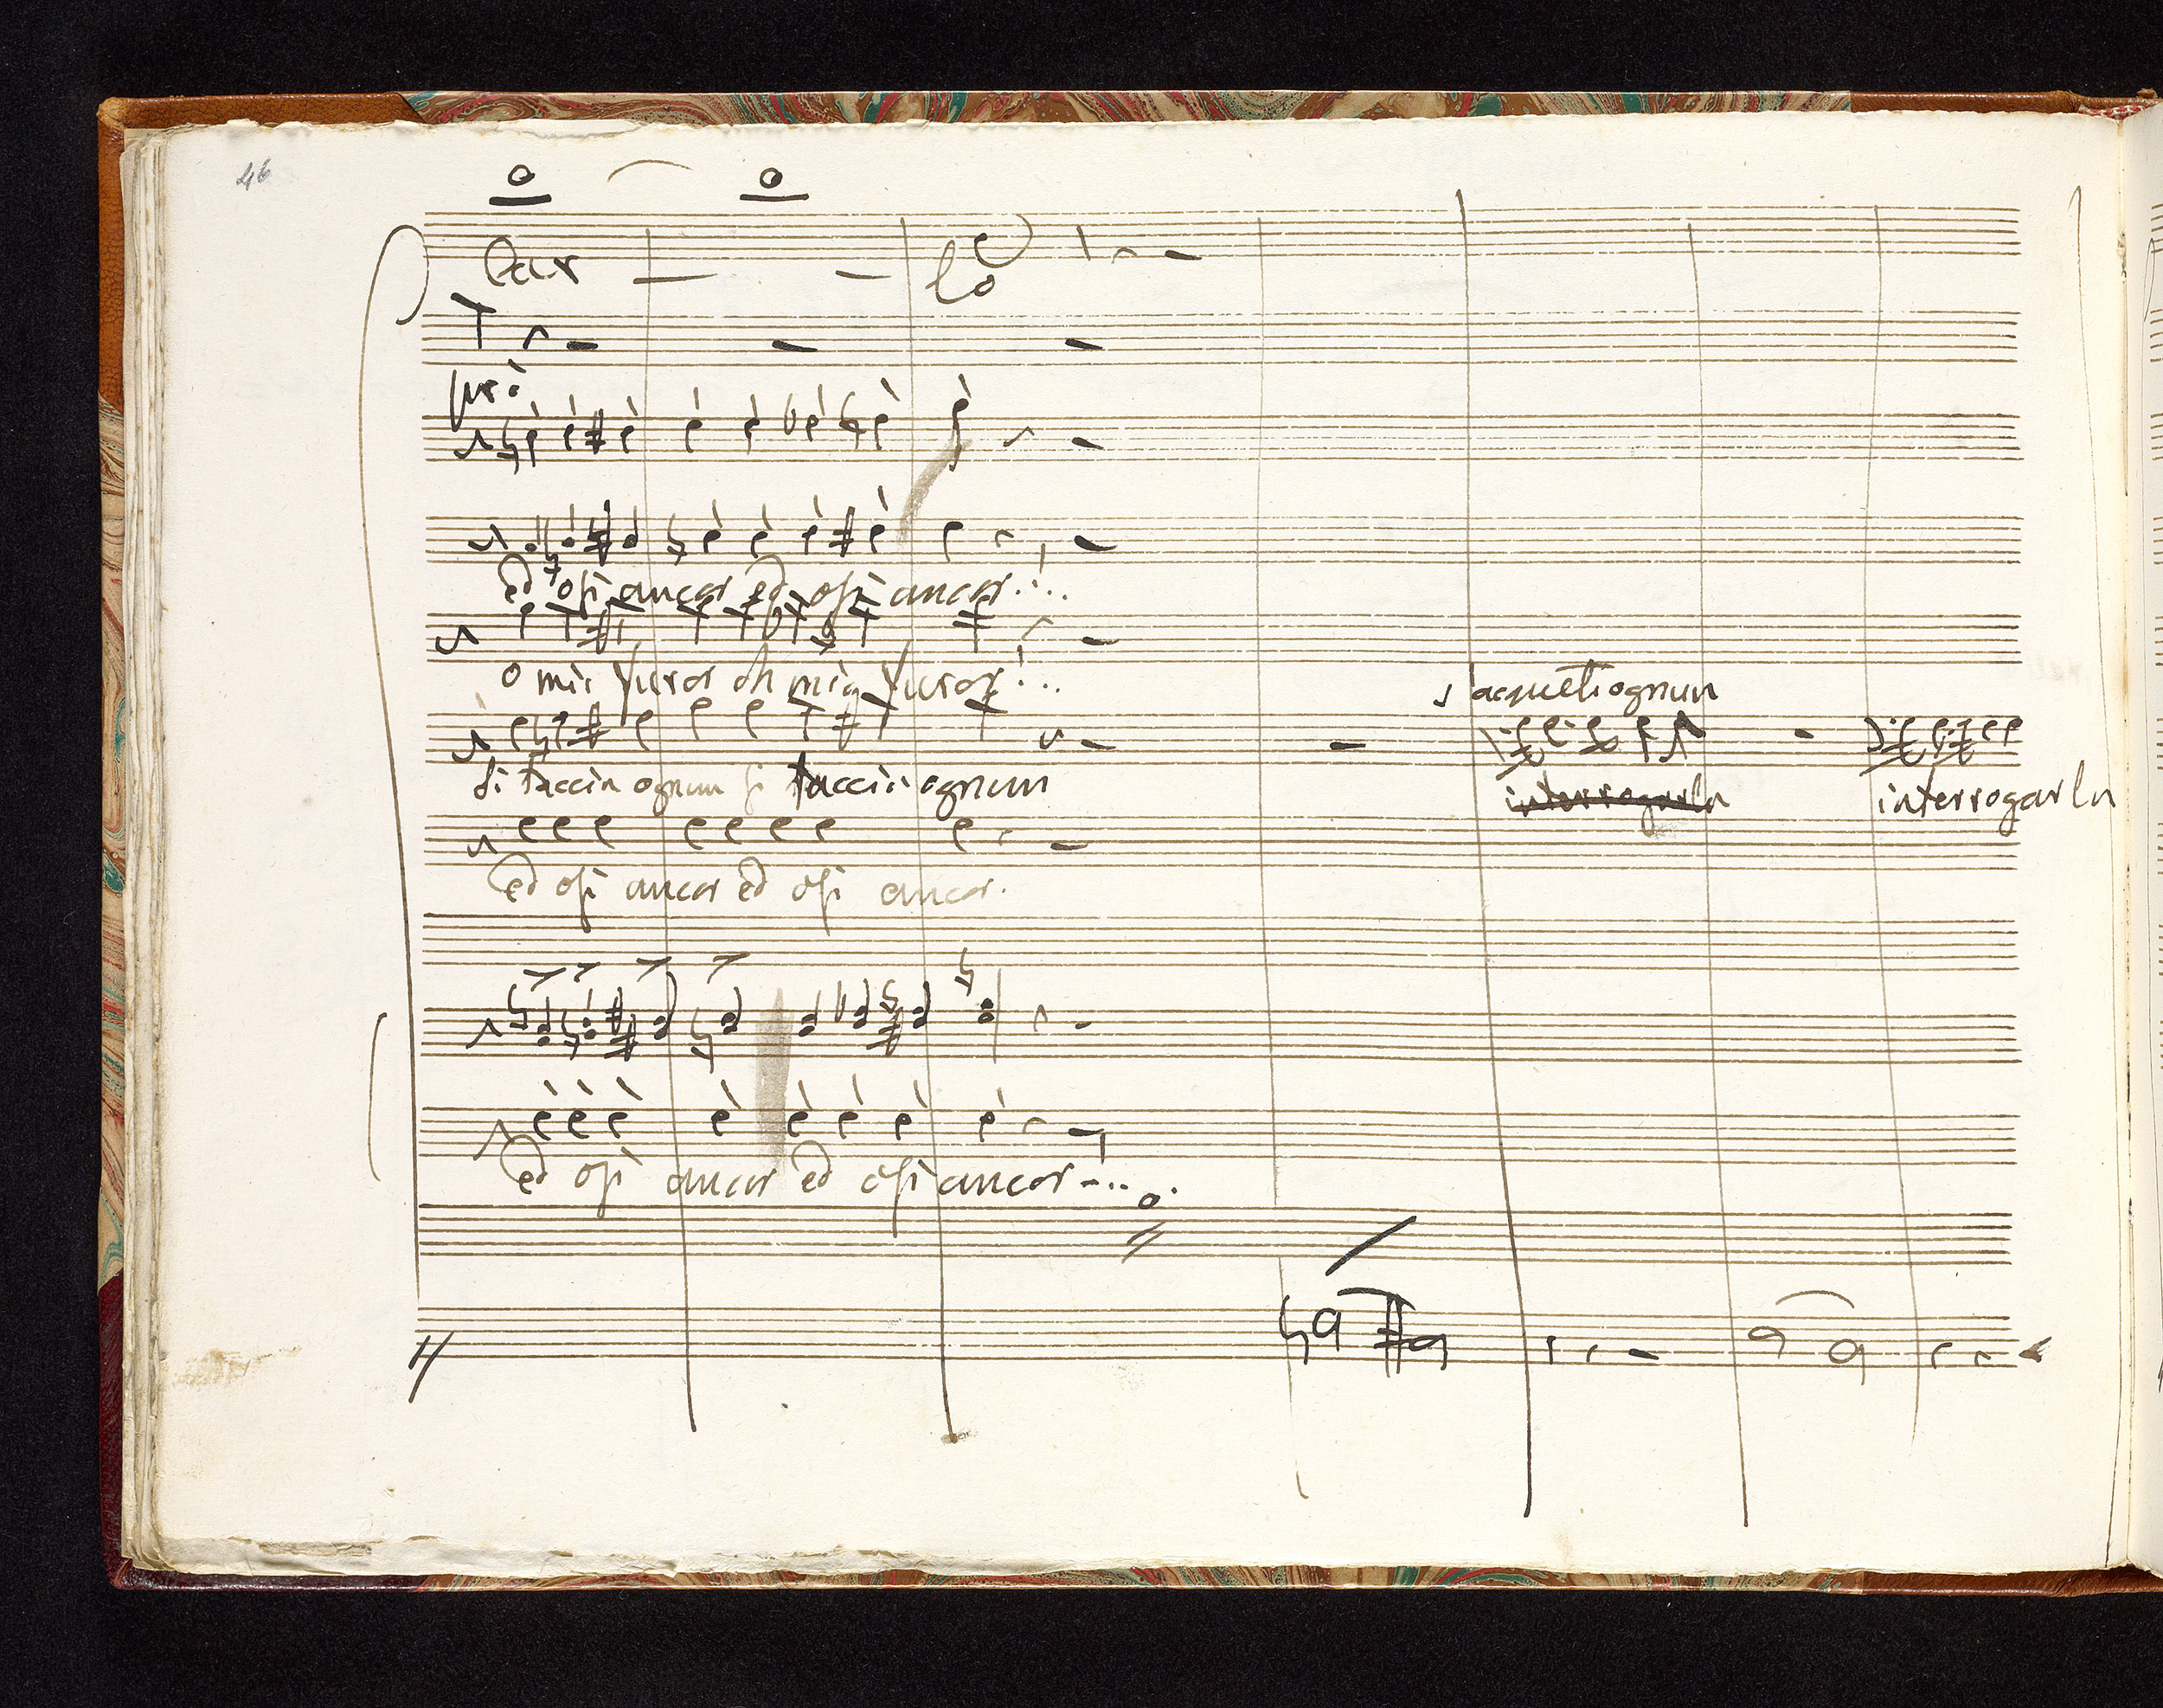 46
Car — — lo
ed osi ancor ed osi ancor!...
o mio furor oh mio furor!...
s'acqueti ognun
si taccia ognun si taccia ognun
interrogarla interrogarla
ed osi ancor ed osi ancor.
ed osi ancor ed osi ancor...